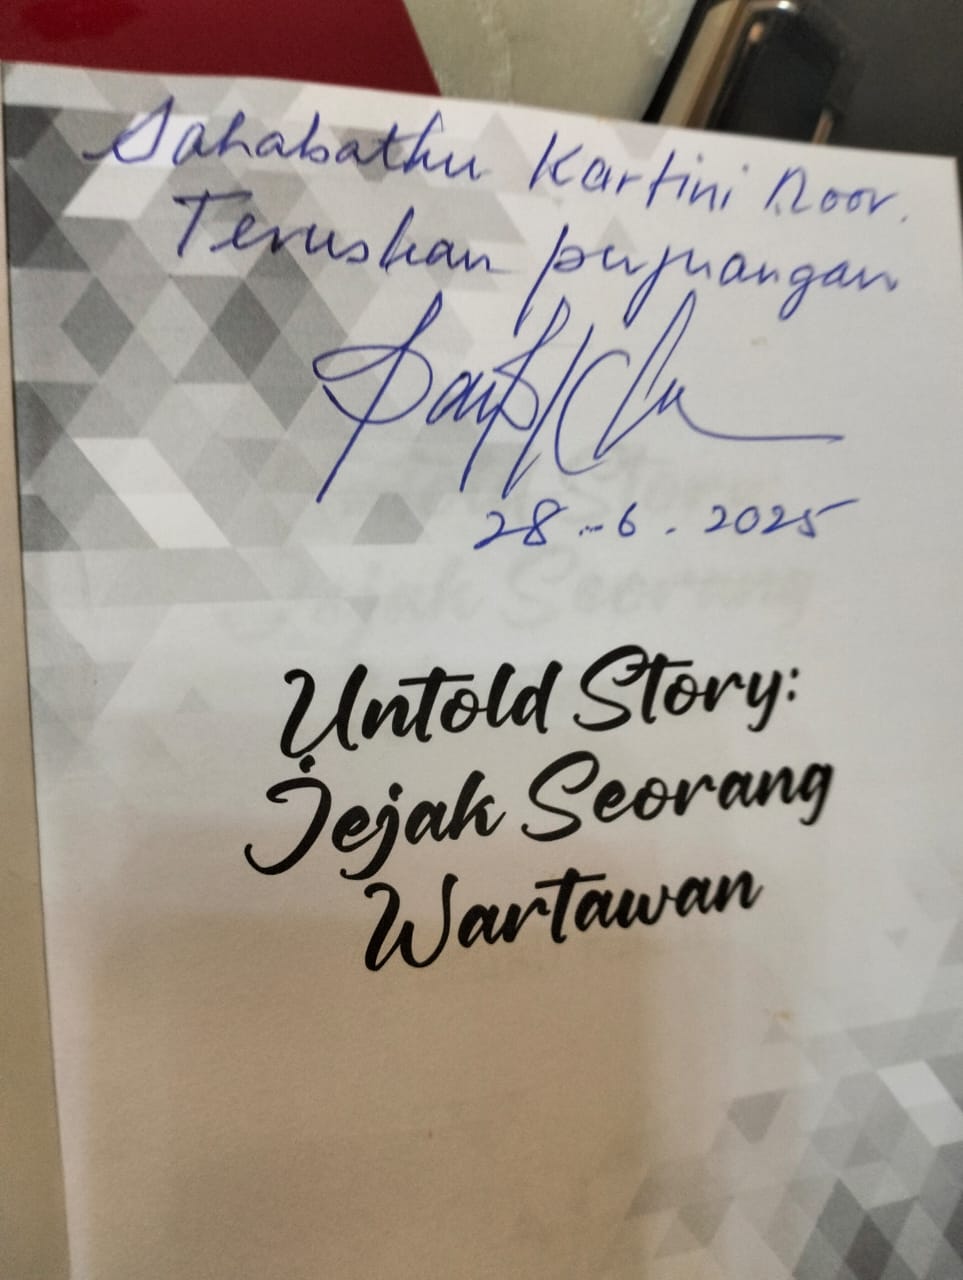 Sahabatku Kartini Noor.
Teruskan perjuangan
28-6.2025
Untold Story:
Jejak Seorang
Wartawan